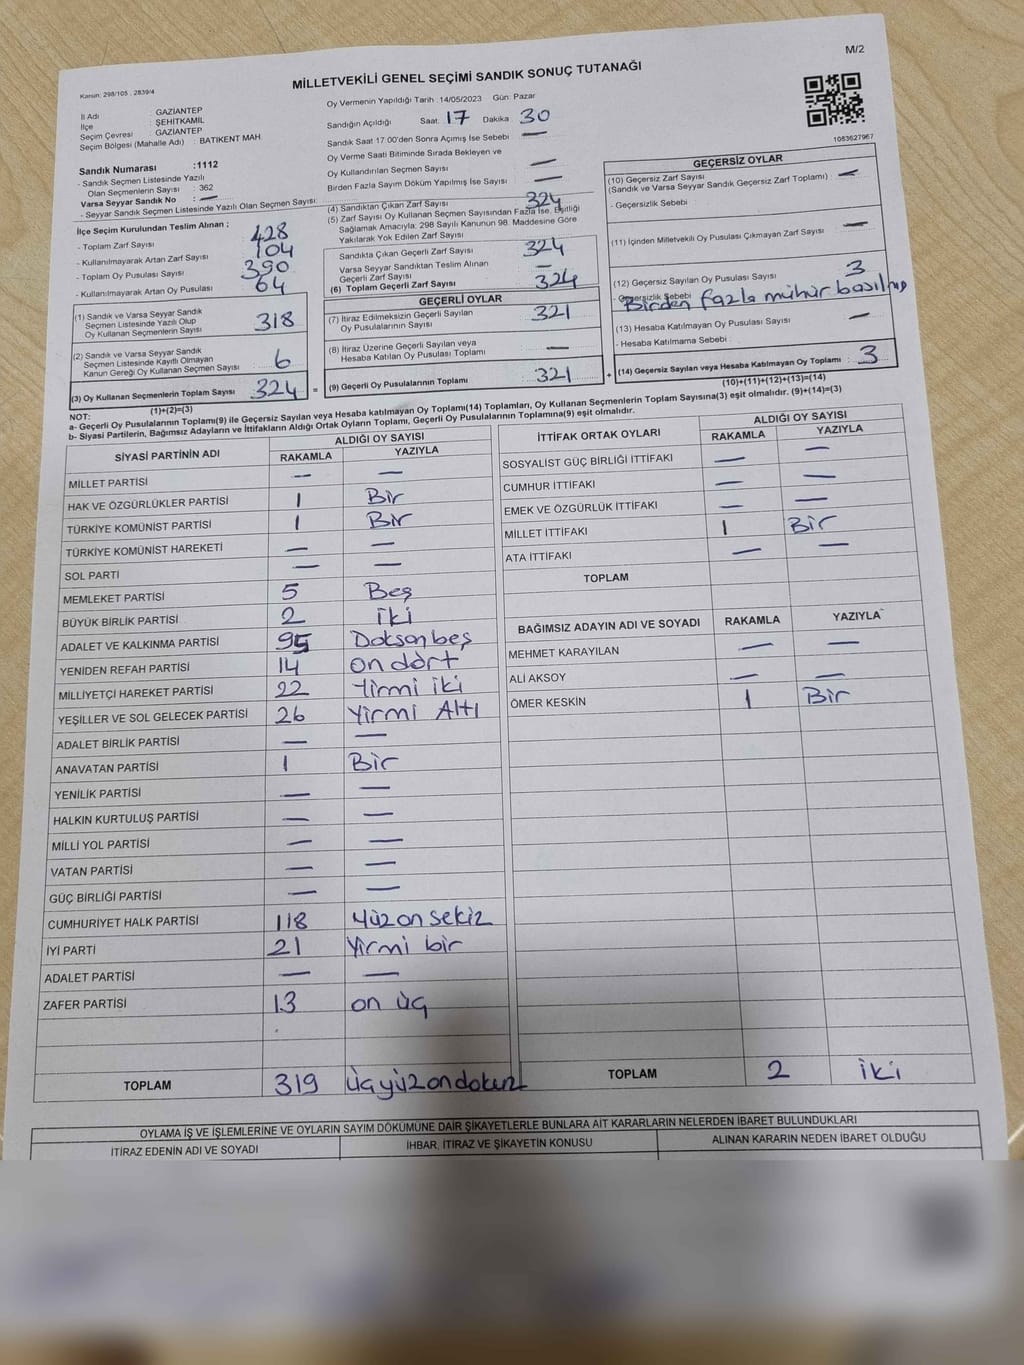 M/2
MİLLETVEKİLİ GENEL SEÇİMİ SANDIK SONUÇ TUTANAĞI
Kanun: 298/105 , 2839/4
İl Adı : GAZİANTEP
İlçe : ŞEHİTKAMİL
Seçim Çevresi : GAZİANTEP
Seçim Bölgesi (Mahalle Adı) : BATIKENT MAH.
Sandık Numarası :1112
- Sandık Seçmen Listesinde Yazılı
Olan Seçmenlerin Sayısı : 362
Varsa Seyyar Sandık No : —
- Seyyar Sandık Seçmen Listesinde Yazılı Olan Seçmen Sayısı:
İlçe Seçim Kurulundan Teslim Alınan ;
- Toplam Zarf Sayısı 428
- Kullanılmayarak Artan Zarf Sayısı 104
- Toplam Oy Pusulası Sayısı 390
- Kullanılmayarak Artan Oy Pusulası 64
(1) Sandık ve Varsa Seyyar Sandık
Seçmen Listesinde Yazılı Olup
Oy Kullanan Seçmenlerin Sayısı 318
(2) Sandık ve Varsa Seyyar Sandık
Seçmen Listesinde Kayıtlı Olmayan
Kanun Gereği Oy Kullanan Seçmen Sayısı : 6
(3) Oy Kullanan Seçmenlerin Toplam Sayısı 324 =
(1)+(2)=(3)
Oy Vermenin Yapıldığı Tarih :14/05/2023 Gün: Pazar
Sandığın Açıldığı Saat: 17 Dakika 30
Sandık Saat 17:00'den Sonra Açımış İse Sebebi —
Oy Verme Saati Bitiminde Sırada Bekleyen ve
Oy Kullandırılan Seçmen Sayısı —
Birden Fazla Sayım Döküm Yapılmış İse Sayısı : —
(4) Sandıktan Çıkan Zarf Sayısı 324
(5) Zarf Sayısı Oy Kullanan Seçmen Sayısından Fazla İse, Eşitliği
Sağlamak Amacıyla; 298 Sayılı Kanunun 98. Maddesine Göre
Yakılarak Yok Edilen Zarf Sayısı
Sandıkta Çıkan Geçerli Zarf Sayısı 324
Varsa Seyyar Sandıktan Teslim Alınan
Geçerli Zarf Sayısı —
(6) Toplam Geçerli Zarf Sayısı 324
GEÇERLİ OYLAR
(7) İtiraz Edilmeksizin Geçerli Sayılan
Oy Pusulalarının Sayısı 321
(8) İtiraz Üzerine Geçerli Sayılan veya
Hesaba Katılan Oy Pusulası Toplamı —
(9) Geçerli Oy Pusulalarının Toplamı 321 +
1083627967
GEÇERSİZ OYLAR
(10) Geçersiz Zarf Sayısı
(Sandık ve Varsa Seyyar Sandık Geçersiz Zarf Toplamı) : —
- Geçersizlik Sebebi :
(11) İçinden Milletvekili Oy Pusulası Çıkmayan Zarf Sayısı : —
(12) Geçersiz Sayılan Oy Pusulası Sayısı 3
- Geçersizlik Sebebi Birden fazla mühür basılmış
(13) Hesaba Katılmayan Oy Pusulası Sayısı : —
- Hesaba Katılmama Sebebi :
(14) Geçersiz Sayılan veya Hesaba Katılmayan Oy Toplamı : 3
(10)+(11)+(12)+(13)=(14)
NOT:
a- Geçerli Oy Pusulalarının Toplamı(9) ile Geçersiz Sayılan veya Hesaba katılmayan Oy Toplamı(14) Toplamları, Oy Kullanan Seçmenlerin Toplam Sayısına(3) eşit olmalıdır. (9)+(14)=(3)
b- Siyasi Partilerin, Bağımsız Adayların ve İttifakların Aldığı Ortak Oyların Toplamı, Geçerli Oy Pusulalarının Toplamına(9) eşit olmalıdır.
SİYASİ PARTİNİN ADI ALDIĞI OY SAYISI
RAKAMLA YAZIYLA
MİLLET PARTİSİ — —
HAK VE ÖZGÜRLÜKLER PARTİSİ 1 Bir
TÜRKİYE KOMÜNİST PARTİSİ 1 Bir
TÜRKİYE KOMÜNİST HAREKETİ — —
SOL PARTİ — —
MEMLEKET PARTİSİ 5 Beş
BÜYÜK BİRLİK PARTİSİ 2 iki
ADALET VE KALKINMA PARTİSİ 95 Doksanbeş
YENİDEN REFAH PARTİSİ 14 on dört
MİLLİYETÇİ HAREKET PARTİSİ 22 Yirmi iki
YEŞİLLER VE SOL GELECEK PARTİSİ 26 Yirmi Altı
ADALET BİRLİK PARTİSİ — —
ANAVATAN PARTİSİ 1 Bir
YENİLİK PARTİSİ — —
HALKIN KURTULUŞ PARTİSİ — —
MİLLİ YOL PARTİSİ — —
VATAN PARTİSİ — —
GÜÇ BİRLİĞİ PARTİSİ — —
CUMHURİYET HALK PARTİSİ 118 Yüz on sekiz
İYİ PARTİ 21 Yirmi bir
ADALET PARTİSİ — —
ZAFER PARTİSİ 13 on üç
TOPLAM 319 üçyüzondokuz
İTTİFAK ORTAK OYLARI ALDIĞI OY SAYISI
RAKAMLA YAZIYLA
SOSYALİST GÜÇ BİRLİĞİ İTTİFAKI — —
CUMHUR İTTİFAKI — —
EMEK VE ÖZGÜRLÜK İTTİFAKI — —
MİLLET İTTİFAKI 1 Bir
ATA İTTİFAKI — —
TOPLAM
BAĞIMSIZ ADAYIN ADI VE SOYADI RAKAMLA YAZIYLA
MEHMET KARAYILAN — —
ALİ AKSOY — —
ÖMER KESKİN 1 Bir
TOPLAM 2 iki
OYLAMA İŞ VE İŞLEMLERİNE VE OYLARIN SAYIM DÖKÜMÜNE DAİR ŞİKAYETLERLE BUNLARA AİT KARARLARIN NELERDEN İBARET BULUNDUKLARI
İTİRAZ EDENİN ADI VE SOYADI İHBAR, İTİRAZ VE ŞİKAYETİN KONUSU ALINAN KARARIN NEDEN İBARET OLDUĞU